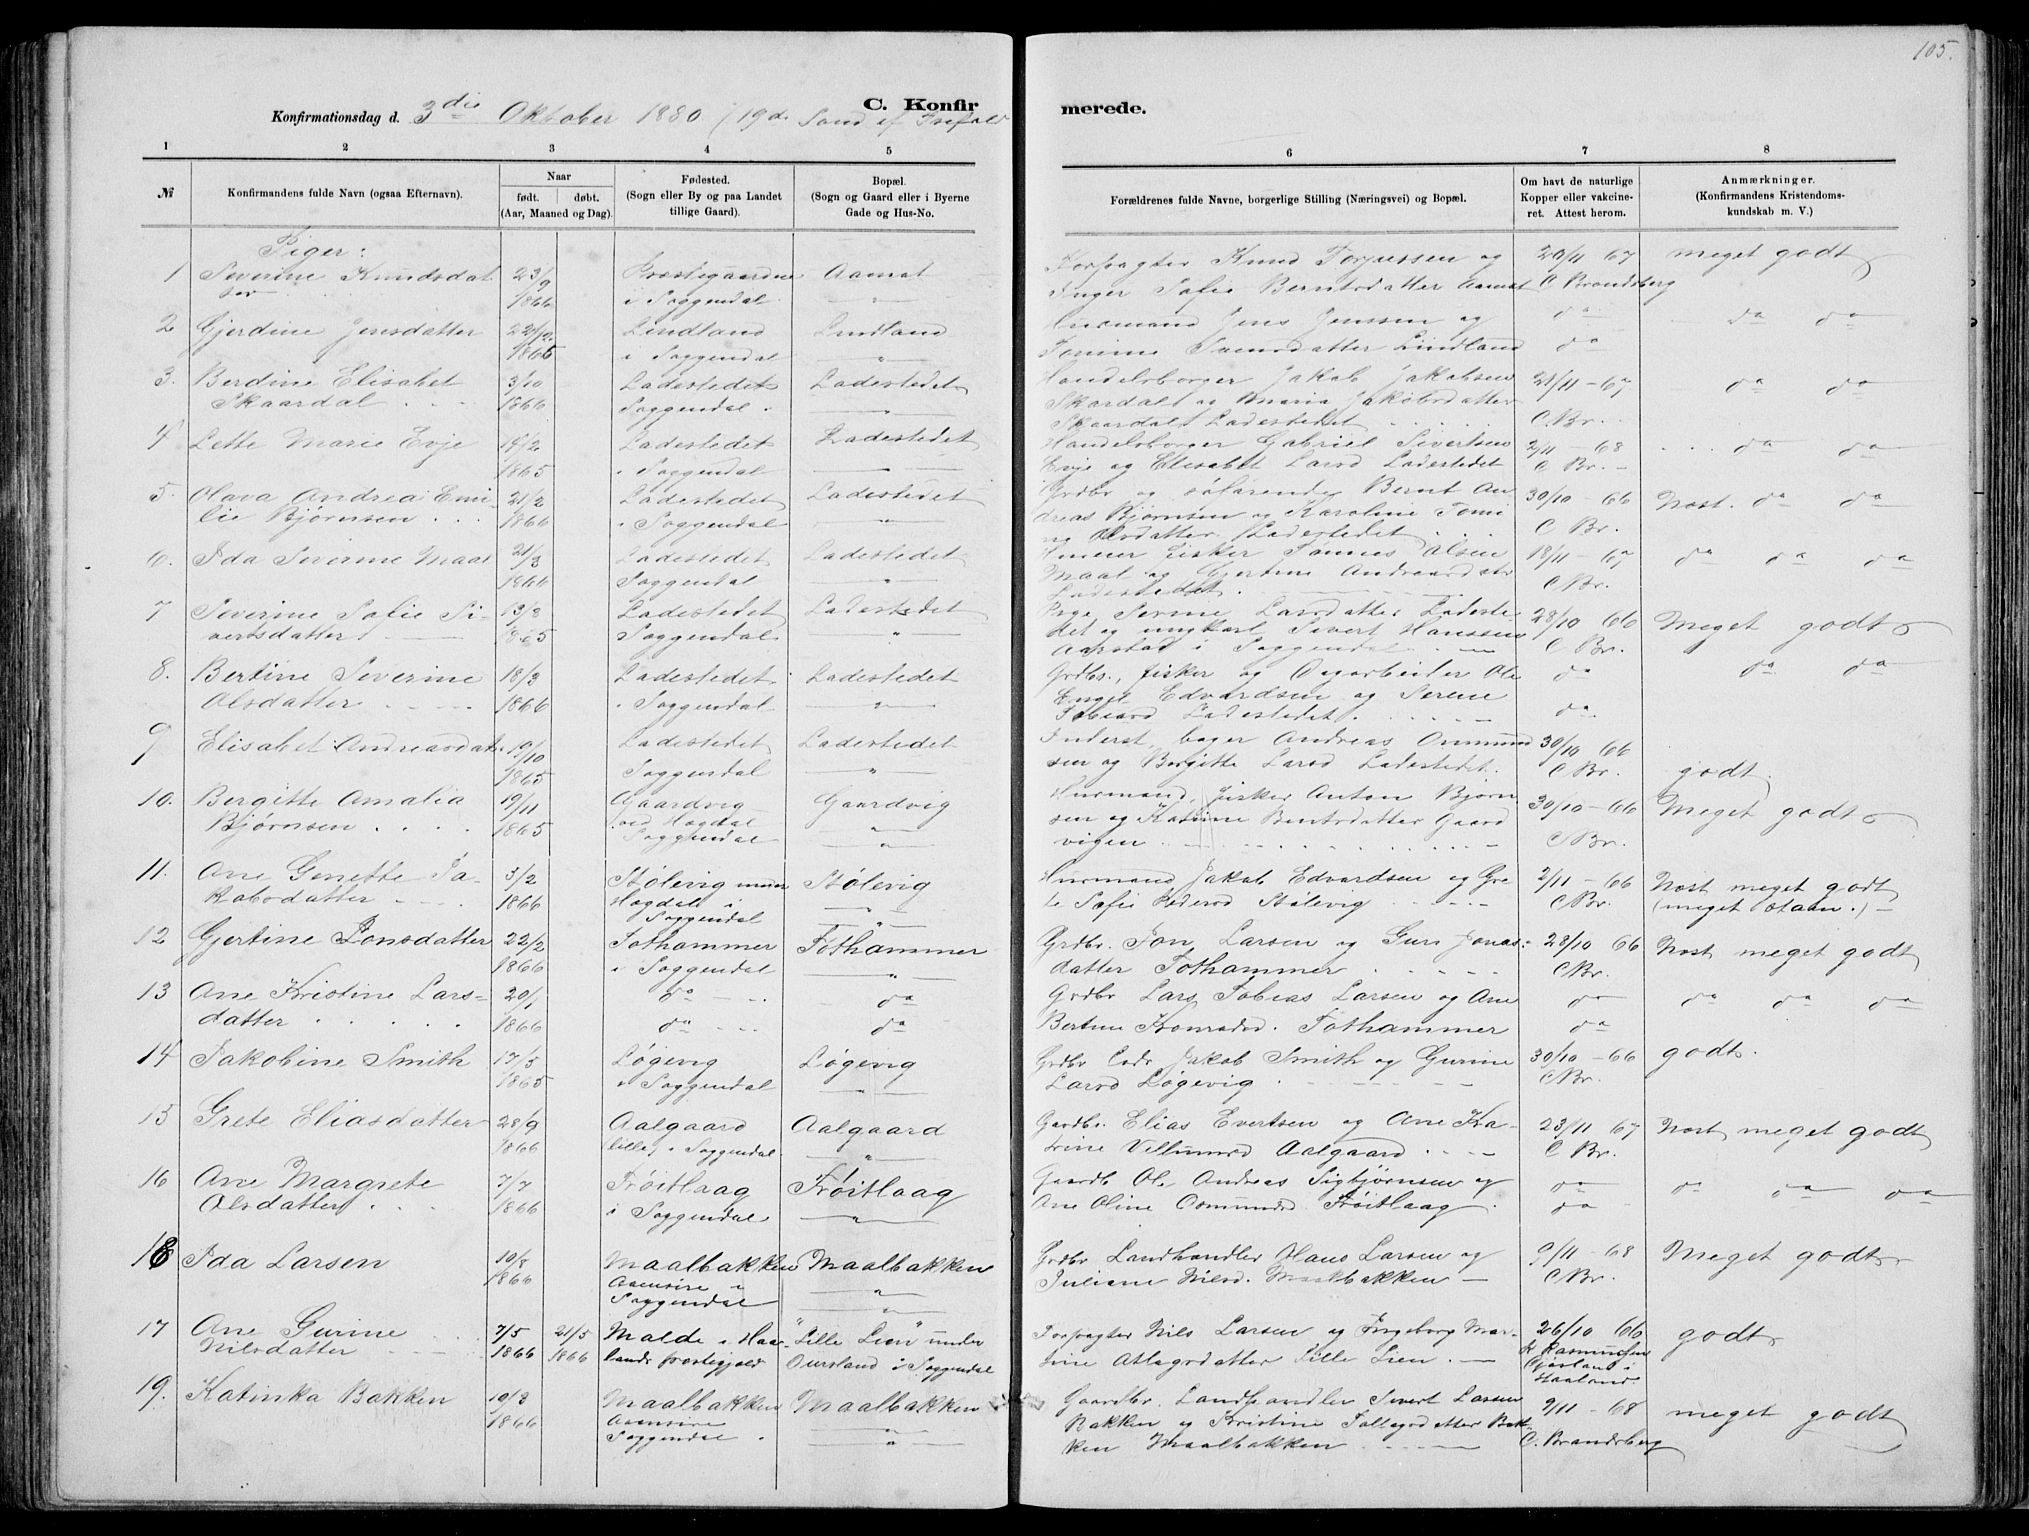 105.
C. Konfirmerede.
Konfirmationsdag d. 3die Oktober 1880 (19de Sønd. ef
1 2 3 4 5 6 7 8
№ Konfirmandens fulde Navn (ogsaa Efternavn). Naar født. døbt. (Aar, Maaned og Dag). Fødested. (Sogn eller By og paa Landet tillige Gaard). Bopæl. (Sogn og Gaard eller i Byerne Gade og Hus-No. Forældrenes fulde Navne, borgerlige Stilling (Næringsvei) og Bopæl. Om havt de naturlige Kopper eller vakcineret. Attest herom. Anmærkninger. (Konfirmandens Kristendomskundskab m. V.)
Piger:
1 Severine Knudsdat 23/9 Præstegaarden Aamot Forpagter Knud Torjussen og 29/11 67 meget godt
ter 1866 i Soggendal " Inger Sofie Berntsdatter Aamot C Brandsberg
2 Gjerdine Jensdatter 22/12 Lindland Lindland Husmand Jens Jenssen og do do do
1865 i Soggendal " Tomine Svensdatter Lindland do
3. Berdine Elisabet 3/10 Ladestedet Ladestedet Handelsborger Jakob Jakobsen 21/11 - 67 do do
Skaardal 1866 Soggendal " Skardalt og Maria Jakobsdatter
Skaardalt Ladestedet C. Br.
4 Lette Marie Evje 19/2 Ladestedet Ladestedet Handelsborger Gabriel Sivertsen 2/11 68 do do
1865 i Soggendal " Evje og Elisabet Larsd Ladestedet C Br.
5. Olava Andrea Emi- 21/2 Ladestedet Ladestedet Grdbr og søfarende Bernt An 30/10 - 66 Nost. do do
lie Bjørnsen 1866 i Soggendal " dreas Bjørnsen og Karoline Tomi C Br.
ne Olsdatter, Ladestedet
6. Ida Severine Maal 21/3 Ladestedet Ladestedet Fisker Tønnes Olsen 18/11 - 67 do do do
1866 Soggendal " Maal og Gjertine Andreasdtr C Br.
Ladestedet
7 Severine Sofie Si- 13/8 Ladestedet Ladestedet Pige Sevrine Larsdatter Ladeste- 28/10 66 Meget godt
vertsdatter 1865 Soggendal " det og ungkarl Sivert Hanssen C Br.
Aarstad i Soggendal
8. Bertine Severine 18/3 Ladestedet Ladestedet Grdbr., fisker og Dagarbeider Ole do do do
Olsdatter 1866 i Soggendal " Engel Edvardsen og Serene do
Tobiasd Ladestedet
9 Elisabet Andreasdat. 19/10 Ladestedet Ladestedet Inderst, bager Andreas Ommund 30/10 66 godt.
1865 Soggendal " sen og Bergitte Larsd Ladestedet. C Br.
10. Bergitte Amalia 19/11 Gaardvig Gaardvig Husmand, fisker Anton Bjørn 30/10 - 66 Meget godt
Bjørnsen 1865 ved Hogdal " sen og Karine Berntsdatter Gaard C Br.
Soggendal " vigen
11. Ane Genette Ja- 3/2 Stølevig under Stølevig Husmand Jakob Edvardsen og Gre 2/11 - 66 Nost meget godt
kobsdatter 1866 Hogdal i " te Sofie Pedersd Stølevig C Br. (meget Staan.) -
Soggendal "
12 Gjertine Jonsdatter 22/2 Fothammer Fothammer Grdbr. Jon Larsen og Guri Jonas- 28/10 66 Nost meget godt
1866 i Soggendal " datter Fothammer C Br.
13 Ane Kristine Lars- 20/1 do do Grdbr Lars Tobias Larsen og Ane do do do do
datter 1866 do do Bertine Konradsd. Fothammer do
14 Jakobine Smith 17/5 Løgevig Løgevig Grdbr Jakob Smith og Gurine 30/10 - 66 godt.
1865 i Soggendal " Larsd Løgevig C Br.
15 Grete Eliasdatter 28/9 Aalgaard Aalgaard Gardbr. Elias Evertsen og Ane Ka- 23/11 67 Nost meget godt
1866 lille, i Soggendal " trine Villumsd Aalgaard C Br.
16 Ane Margrete 7/7 Frøitlaag Frøitlaag Gaardb Ole Andreas Sigbjørnsen og do do do do
Olsdatter 1866 i Soggendal " Ane Oline Osmundsd Frøitlaag. do
18 Ida Larsen 10/8 Maalbakken Maalbakken Grdbr Landhandler Hans Larsen og 9/11 - 68 Meget godt
1866 Aaensire i " Juliane Nilsd. Maalbakken C Br.
Soggendal "
17 Ane Gurine 7/5 21/5 Malde i Haa- "Lille Lien" under Forpagter Nils Larsen og Ingeborg Mar- 26/10 66 godt
Nilsdatter 1866 1866 lands præstegjeld Oursland i Soggendal tine Atlagsdatter Lille Lien. K Rasmussen
Gjøsland i
Haaland
19. Katinka Bakken 10/3 Maalbakken Maalbakken Gaardbr. Landhandler Sivert Larsen 9/11 - 68 meget godt
1866 Aaensire " Bakken og Kristine Tollagsdatter Bak- C. Brandsberg
Soggendal " ken Maalbakken